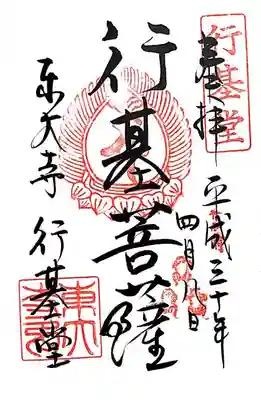 行基堂
奉拝
平成三十年
四月八日
行基菩薩
東大寺 行基堂